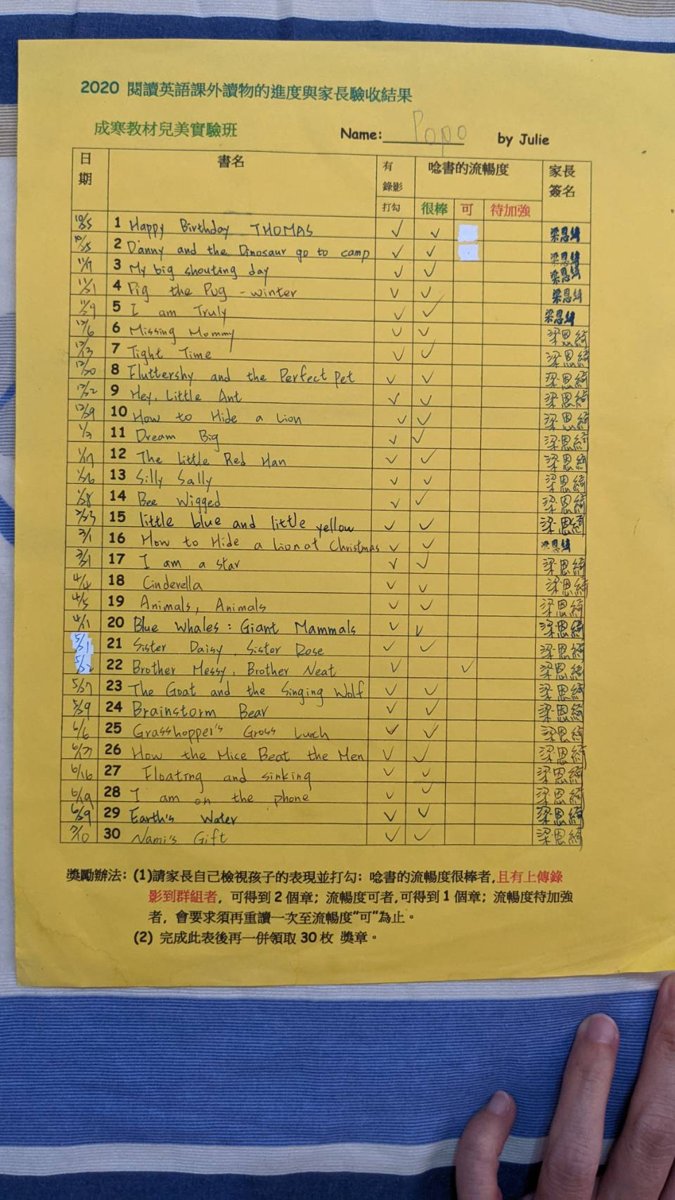 2020 閱讀英語課外讀物的進度與家長驗收結果
成寒教材兒美實驗班 Name: Popo by Julie
日期 書名 有錄影打勾 唸書的流暢度 很棒 可 待加強 家長簽名
10/25 1 Happy Birthday THOMAS ✓ ✓ 梁恩綺
2 Danny and the Dinosaur go to camp ✓ ✓ 梁恩綺
11/7 3 My big shouting day ✓ ✓ 梁恩綺
11/21 4 Pig the Pug - winter ✓ ✓ 梁恩綺
11/29 5 I am Truly ✓ ✓ 梁恩綺
12/6 6 Missing Mommy ✓ ✓ 梁恩綺
12/13 7 Tight Time ✓ ✓ 梁恩綺
12/20 8 Fluttershy and the Perfect Pet ✓ ✓ 梁恩綺
12/22 9 Hey, Little Ant ✓ ✓ 梁恩綺
12/29 10 How to Hide a Lion ✓ ✓ 梁恩綺
11 Dream Big ✓ ✓ 梁恩綺
1/17 12 The Little Red Han ✓ ✓ 梁恩綺
13 Silly Sally ✓ ✓ 梁恩綺
14 Bee Wigged ✓ ✓ 梁恩綺
15 little blue and little yellow ✓ ✓ 梁恩綺
3/1 16 How to Hide a Lion at Christmas ✓ ✓ 梁恩綺
3/31 17 I am a star ✓ ✓ 梁恩綺
4/4 18 Cinderella ✓ ✓ 梁恩綺
4/5 19 Animals, Animals ✓ ✓ 梁恩綺
4/11 20 Blue Whales: Giant Mammals ✓ ✓ 梁恩綺
5/21 21 Sister Daisy, Sistor Rose ✓ ✓ 梁恩綺
5/22 22 Brother Messy, Brother Neat ✓ ✓ 梁恩綺
5/27 23 The Goat and the Singing Wolf ✓ ✓ 梁恩綺
5/29 24 Brainstorm Bear ✓ ✓ 梁恩綺
6/6 25 Grasshopper's Gross Lunch ✓ ✓ 梁恩綺
26 How the Mice Beat the Men ✓ ✓ 梁恩綺
6/16 27 Floating and sinking ✓ ✓ 梁恩綺
6/19 28 I am on the phone ✓ ✓ 梁恩綺
6/29 29 Earth's Water ✓ ✓ 梁恩綺
7/10 30 Nami's Gift ✓ ✓ 梁恩綺
獎勵辦法: (1)請家長自己檢視孩子的表現並打勾: 唸書的流暢度很棒者,且有上傳錄
影到群組者, 可得到 2 個章; 流暢度可者,可得到 1 個章; 流暢度待加強
者, 會要求須再重讀一次至流暢度"可"為止。
(2) 完成此表後再一併領取 30 枚 獎章。